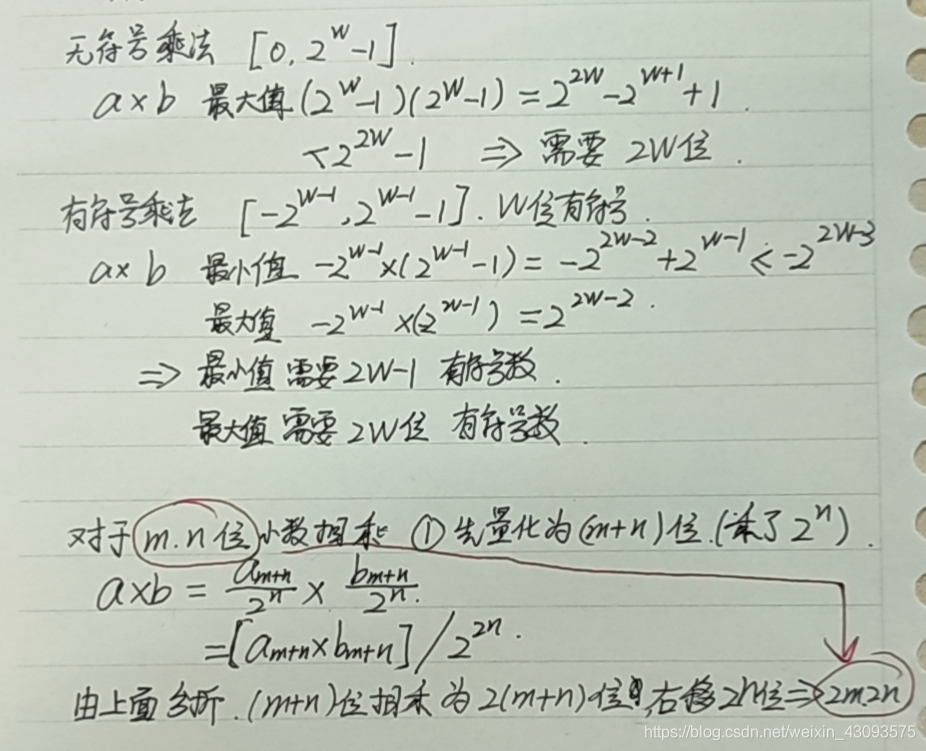 无符号乘法 [0, 2^w-1].
a×b 最大值 (2^w-1)(2^w-1) = 2^{2w}-2^{w+1}+1.
<2^{2w}-1 ⇒ 需要 2W位.
有符号乘法 [-2^{w-1}, 2^{w-1}-1]. W位有符号.
a×b 最小值 -2^{w-1}×(2^{w-1}-1) = -2^{2w-2}+2^{w-1} < -2^{2w-3}
最大值 -2^{w-1}×(2^{w-1}) = 2^{2w-2}.
⇒ 最小值 需要 2W-1 有符号数.
最大值 需要 2W位 有符号数.
对于 m.n位 小数相乘 ① 先量化为(m+n)位.(乘了2^n).
a×b = a_{m+n}/2^n × b_{m+n}/2^n.
=[a_{m+n}×b_{m+n}]/2^{2n}.
由上面分析.(m+n)位相乘为2(m+n)位 右移2n位⇒2m.2n
https://blog.csdn.net/weixin_43093575